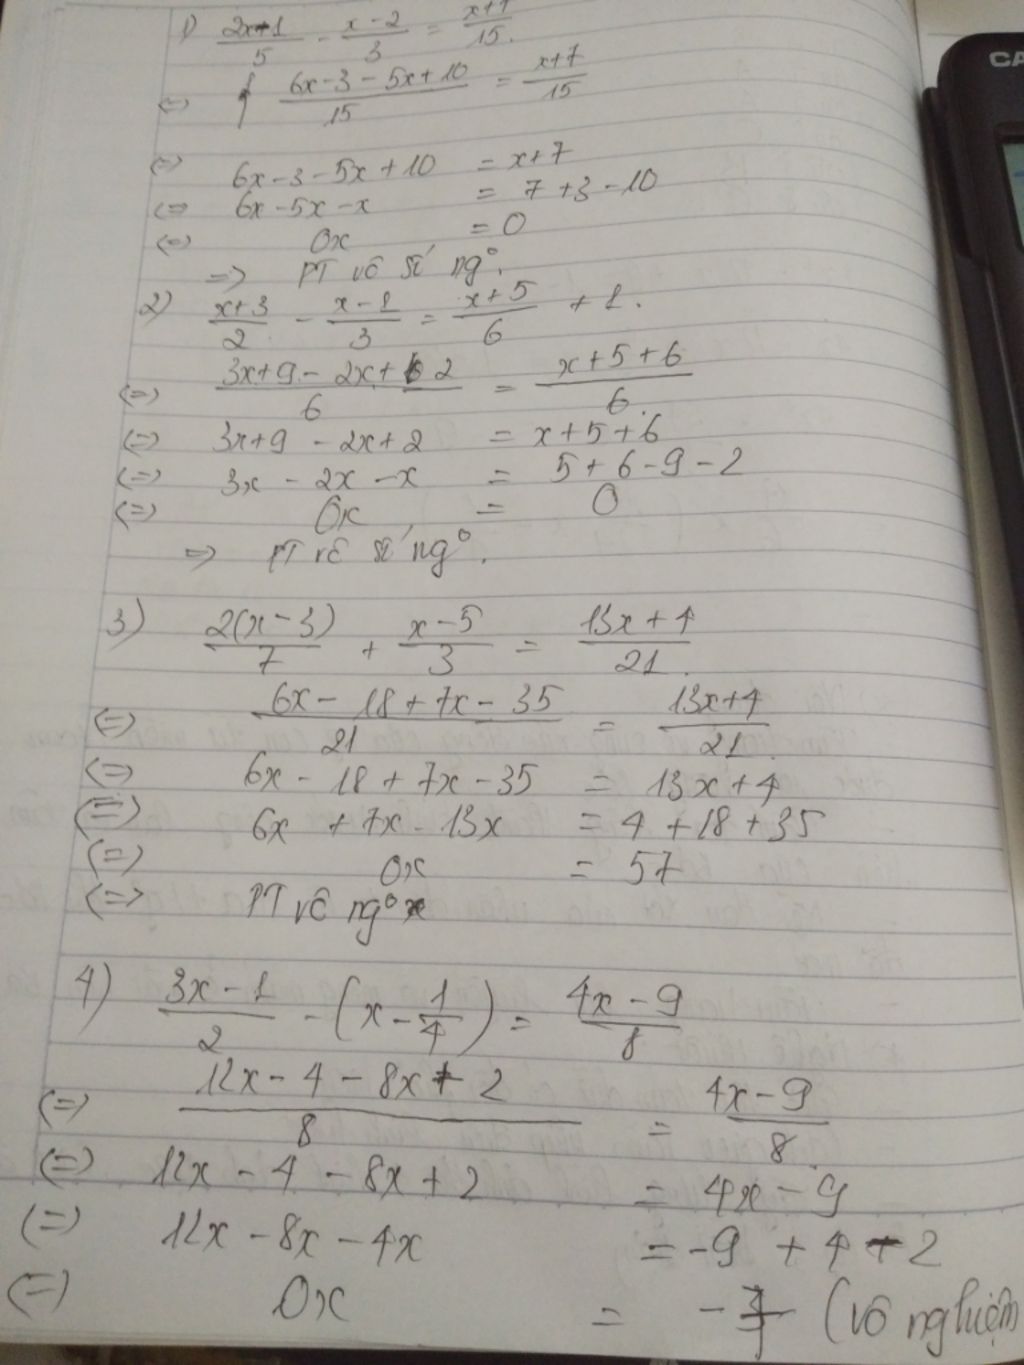 1) (2x-1)/5 - (x-2)/3 = (x+7)/15.
<=> (6x-3-5x+10)/15 = (x+7)/15
<=> 6x-3-5x+10 = x+7
<=> 6x-5x-x = 7+3-10
<=> 0x = 0
=> PT vô số ngº.
2) (x+3)/2 - (x-1)/3 = (x+5)/6 + 1.
<=> (3x+9-2x+2)/6 = (x+5+6)/6.
<=> 3x+9-2x+2 = x+5+6
<=> 3x-2x-x = 5+6-9-2
<=> 0x = 0
=> PT vô số ngº.
3) 2(x-3)/7 + (x-5)/3 = (13x+4)/21.
<=> (6x-18+7x-35)/21 = (13x+4)/21
<=> 6x-18+7x-35 = 13x+4
<=> 6x+7x-13x = 4+18+35
<=> 0x = 57
<=> PT vô ngº
4) (3x-1)/2 - (x-1/4) = (4x-9)/8
<=> (12x-4-8x+2)/8 = (4x-9)/8.
<=> 12x-4-8x+2 = 4x-9
<=> 12x-8x-4x = -9+4-2
<=> 0x = -7 (vô nghiệm
CA